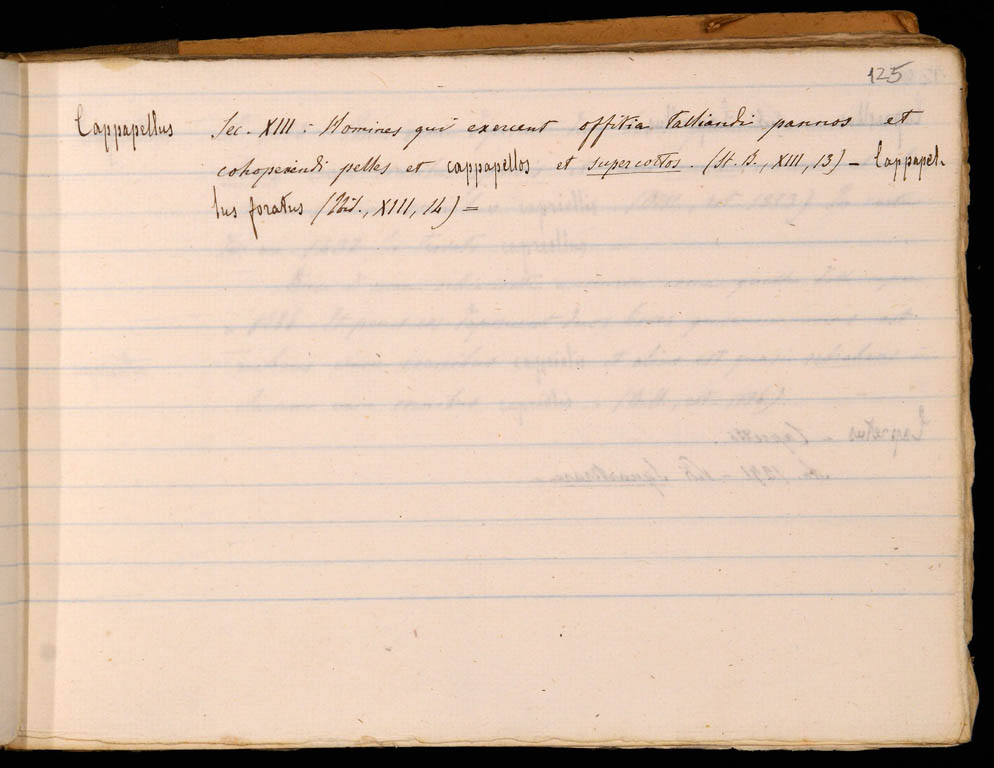 125
Cappapellus Sec. XIII: Homines qui exercent offitia talliandi pannos et
cohoperiendi pelles et cappapellos et supercottos. (St. B., XIII, 13) – Cappapel-
lus foratus (Ibid., XIII, 14) –